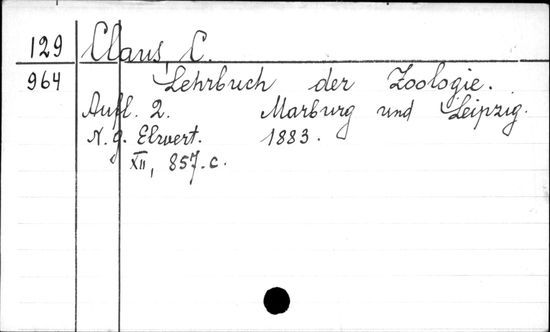 129 Claus, C.
964 Lehrbuch der Zoologie.
Aufl. 2. Marburg und Leipzig.
N. G. Elwert. 1883.
XII, 857. c.